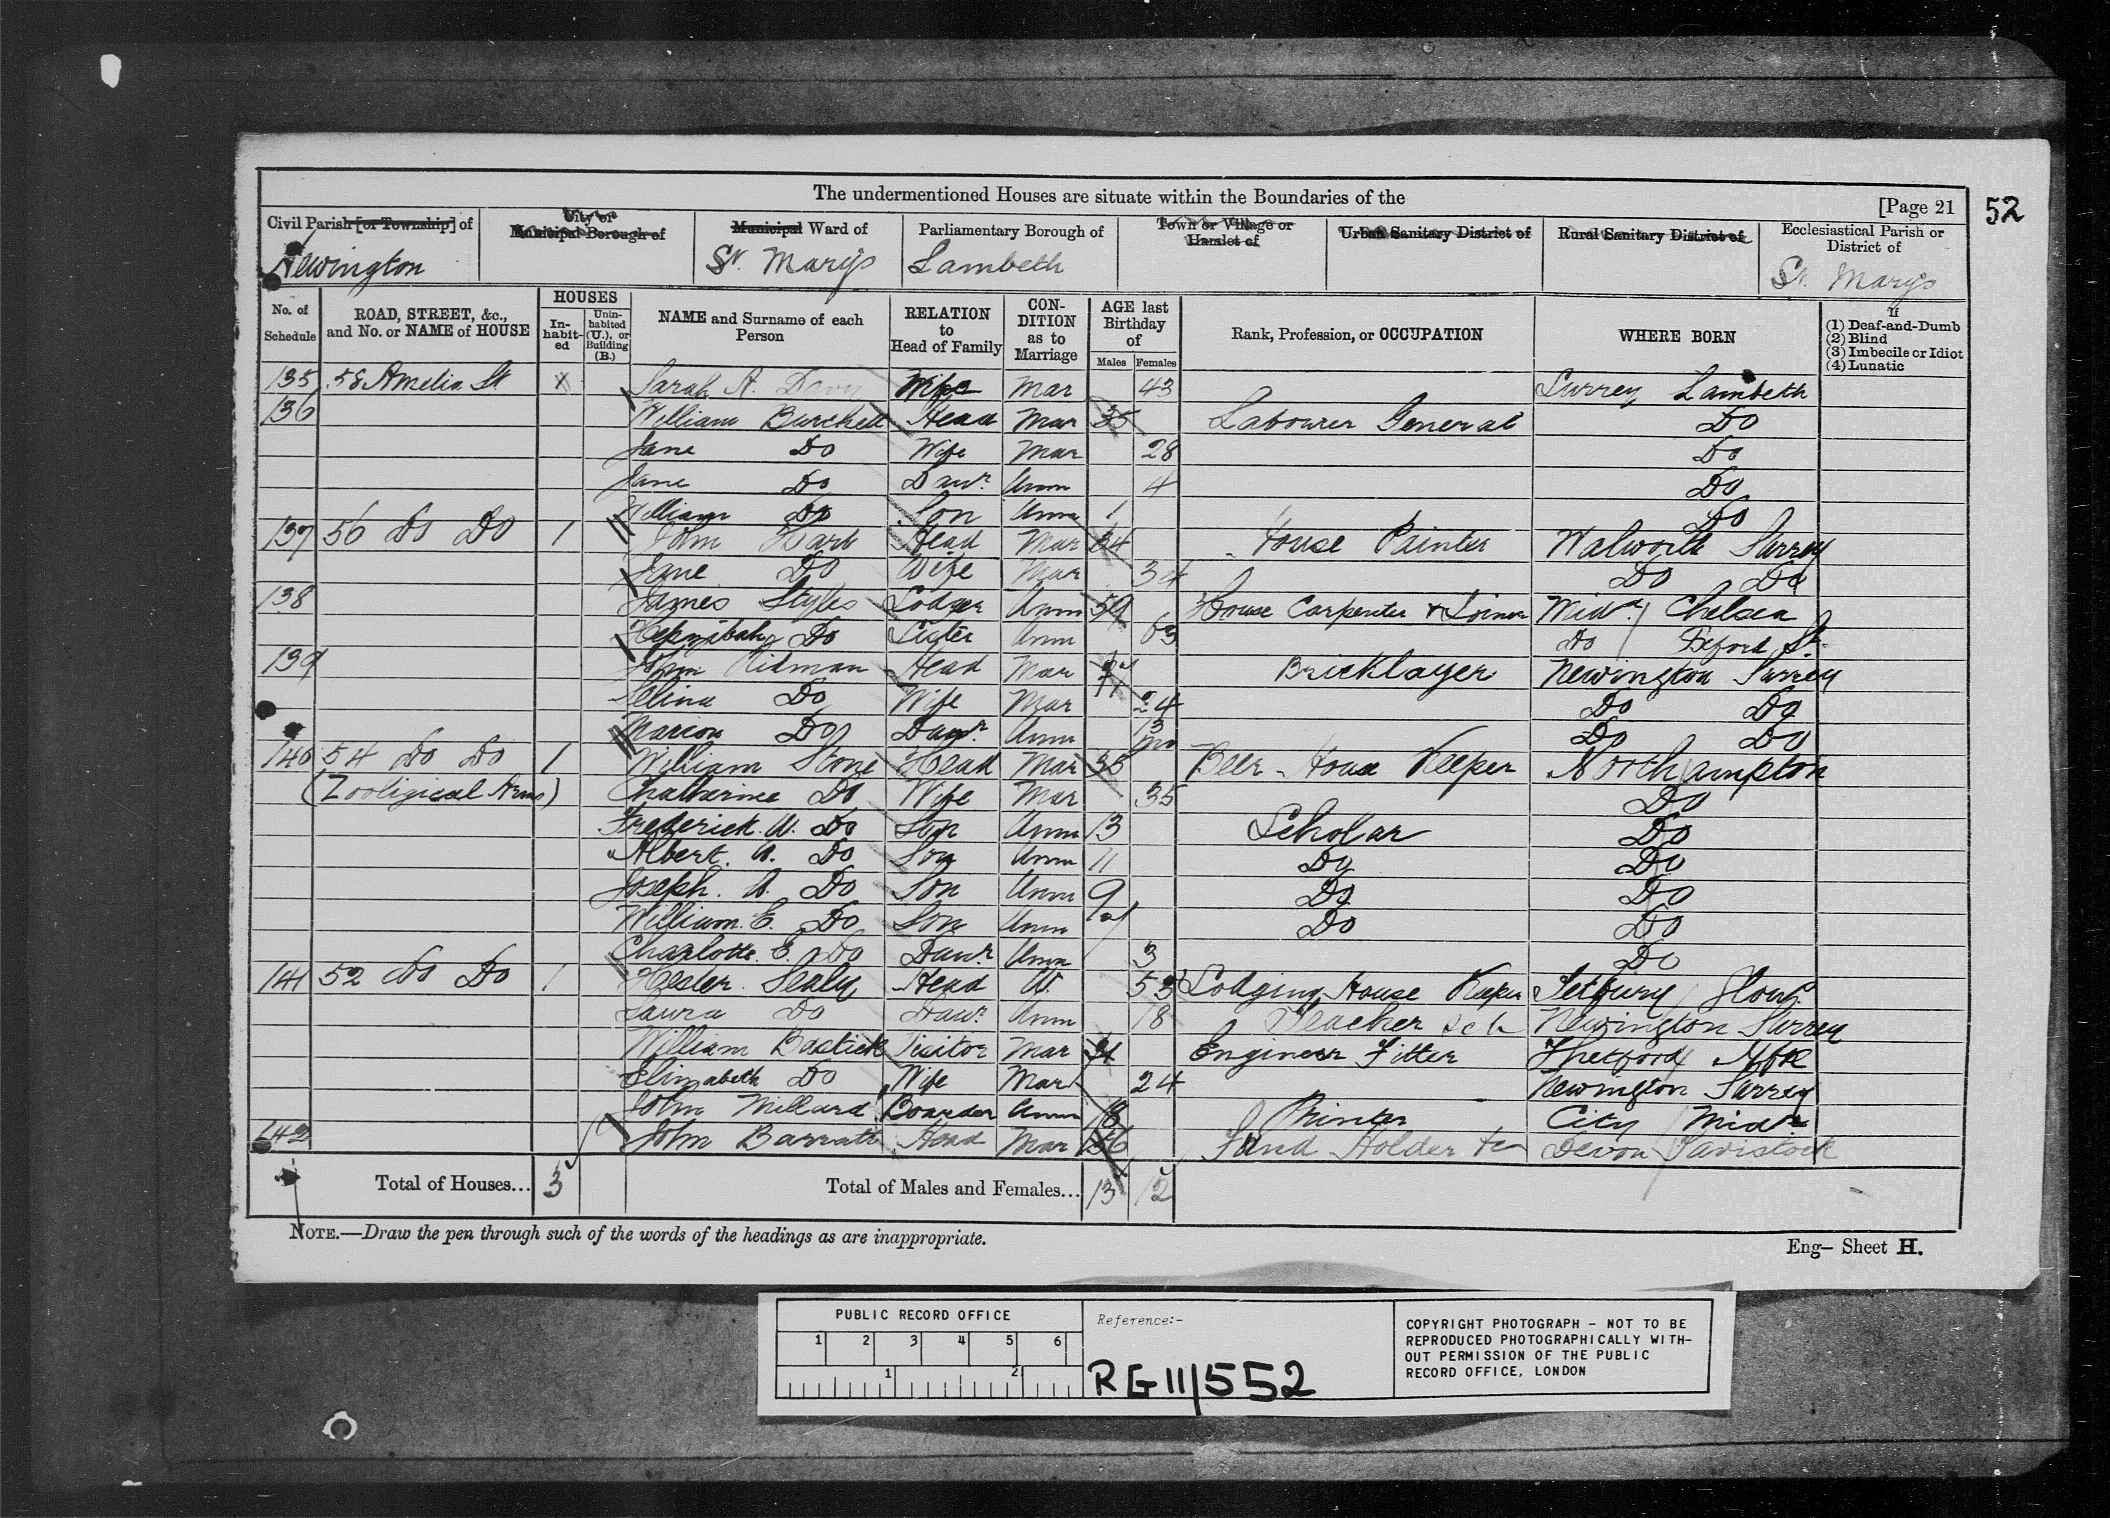 The undermentioned Houses are situate within the Boundaries of the
[Page 21
52
Civil Parish [or Township] of
City or Municipal Borough of
Municipal Ward of
Parliamentary Borough of
Town or Village or Hamlet of
Urban Sanitary District of
Rural Sanitary District of
Ecclesiastical Parish or District of
Newington
St. Marys
Lambeth
St. Marys
No. of Schedule
ROAD, STREET, &c., and No. or NAME of HOUSE
HOUSES
In-habit-ed
Unin-habited (U.), or Building (B.)
NAME and Surname of each Person
RELATION to Head of Family
CON-DITION as to Marriage
AGE last Birthday of
Males
Females
Rank, Profession, or OCCUPATION
WHERE BORN
If
(1) Deaf-and-Dumb
(2) Blind
(3) Imbecile or Idiot
(4) Lunatic
135 58 Amelia St X Sarah A. Davy Wife Mar 43 Surrey Lambeth
136 William Burchell Head Mar 35 Labourer General Do
Jane Do Wife Mar 28 Do
Jane Do Dawr. Unm 4 Do
William Do Son Unm 1 Do
137 56 Do Do 1 Head Mar 34 House Painter Walworth Surrey
Jane Do Wife Mar 34 Do Do
138 James Styles Lodger Unm 59 House Carpenter & Joiner Midx Chelsea
Hepzibah Do Sister Unm 63 Do
139 John Ridman Head Mar Bricklayer Newington Surrey
Selina Do Wife Mar 24 Do Do
Marion Do Dawr. Unm 3 mo Do Do
140 54 Do Do 1 William Stone Head Mar 35 Beer-House Keeper Northampton
(Zooligical Arms) Chatherine Do Wife Mar 35 Do
Frederick. W. Do Son Unm 13 Scholar Do
Albert. A. Do Son Unm 11 Do Do
Joseph. A. Do Son Unm 9 Do Do
William. E. Do Son Unm Do Do
Charlotte. E. Do Dawr. Unm 3 Do
141 52 Do Do 1 Hester Sealy Head W 53 Lodging House Keeper Tetbury Glouc
Laura Do Dawr. Unm 18 Teacher Sch Newington Surrey
William Bastick Visitor Mar Engineer Fitter Thetford Nflk
Elizabeth Do Wife Mar 24 Newington Surrey
John Millard Boarder Unm 18 Printer City Midx
142 John Barratt Head Mar Fund Holder Devon Tavistock
Total of Houses... 3
Total of Males and Females... 13 12
NOTE.—Draw the pen through such of the words of the headings as are inappropriate.
Eng— Sheet H.
PUBLIC RECORD OFFICE
1 2 3 4 5 6
1 2
Reference:-
RG 11/552
COPYRIGHT PHOTOGRAPH - NOT TO BE
REPRODUCED PHOTOGRAPHICALLY WITH-
OUT PERMISSION OF THE PUBLIC
RECORD OFFICE, LONDON